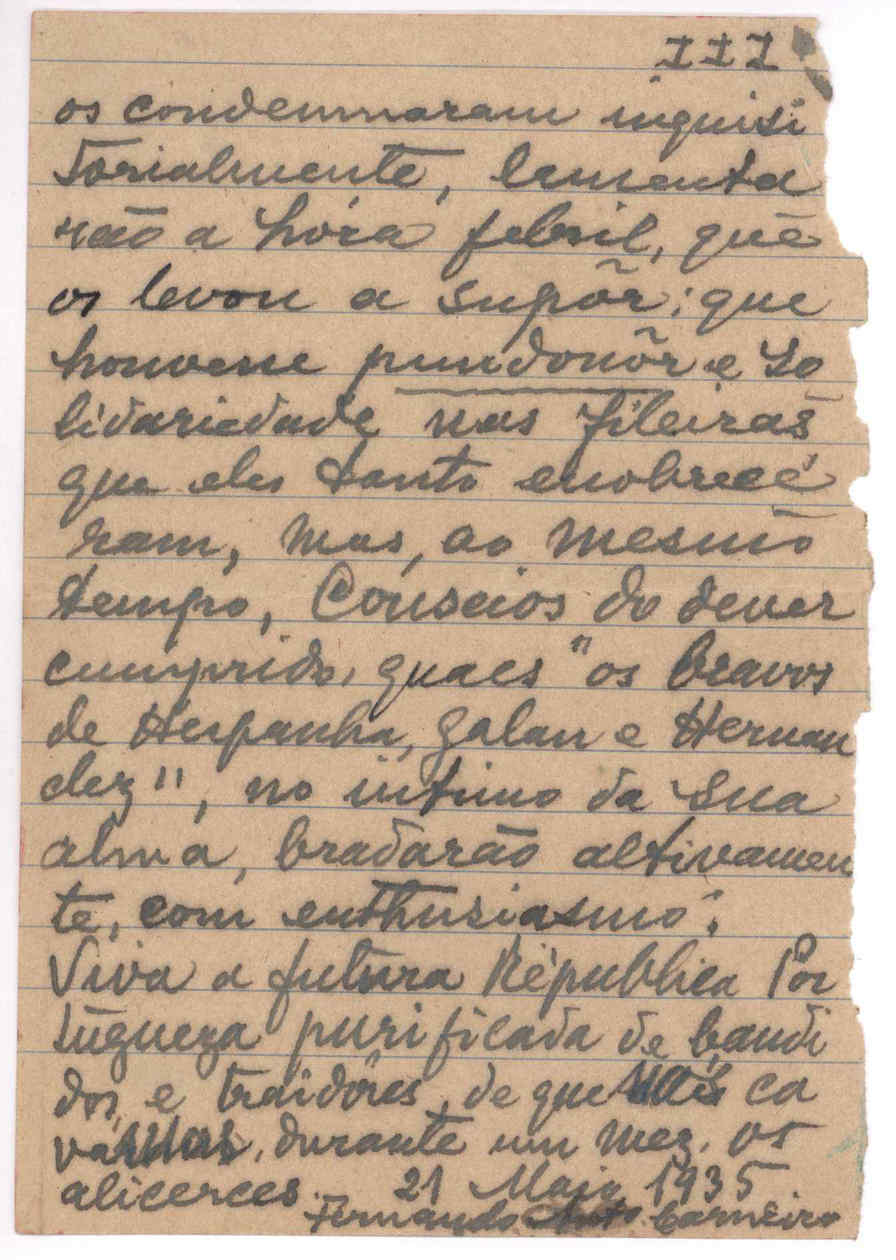 III
os condemnaram inquisi
torialmente, lamenta
rão a hóra febril, que
os levou a supôr; que
houvesse pundonôr e so
lidariedade nas fileiras
que eles tanto enobrecê
ram, mas, ao mesmo
tempo, Conscios do dever
cumprido, quaes "os bravos
de Hespanha, Galan e Hernan
dez", no intimo da sua
alma, bradarão altivamen
te, com enthusiasmo:
Viva a futura Républica Por
tugueza purificada de bandi
dos, e traidôres, de que ca
durante um mez. os
alicerces. 21 Maio 1935
Fernando Carneiro